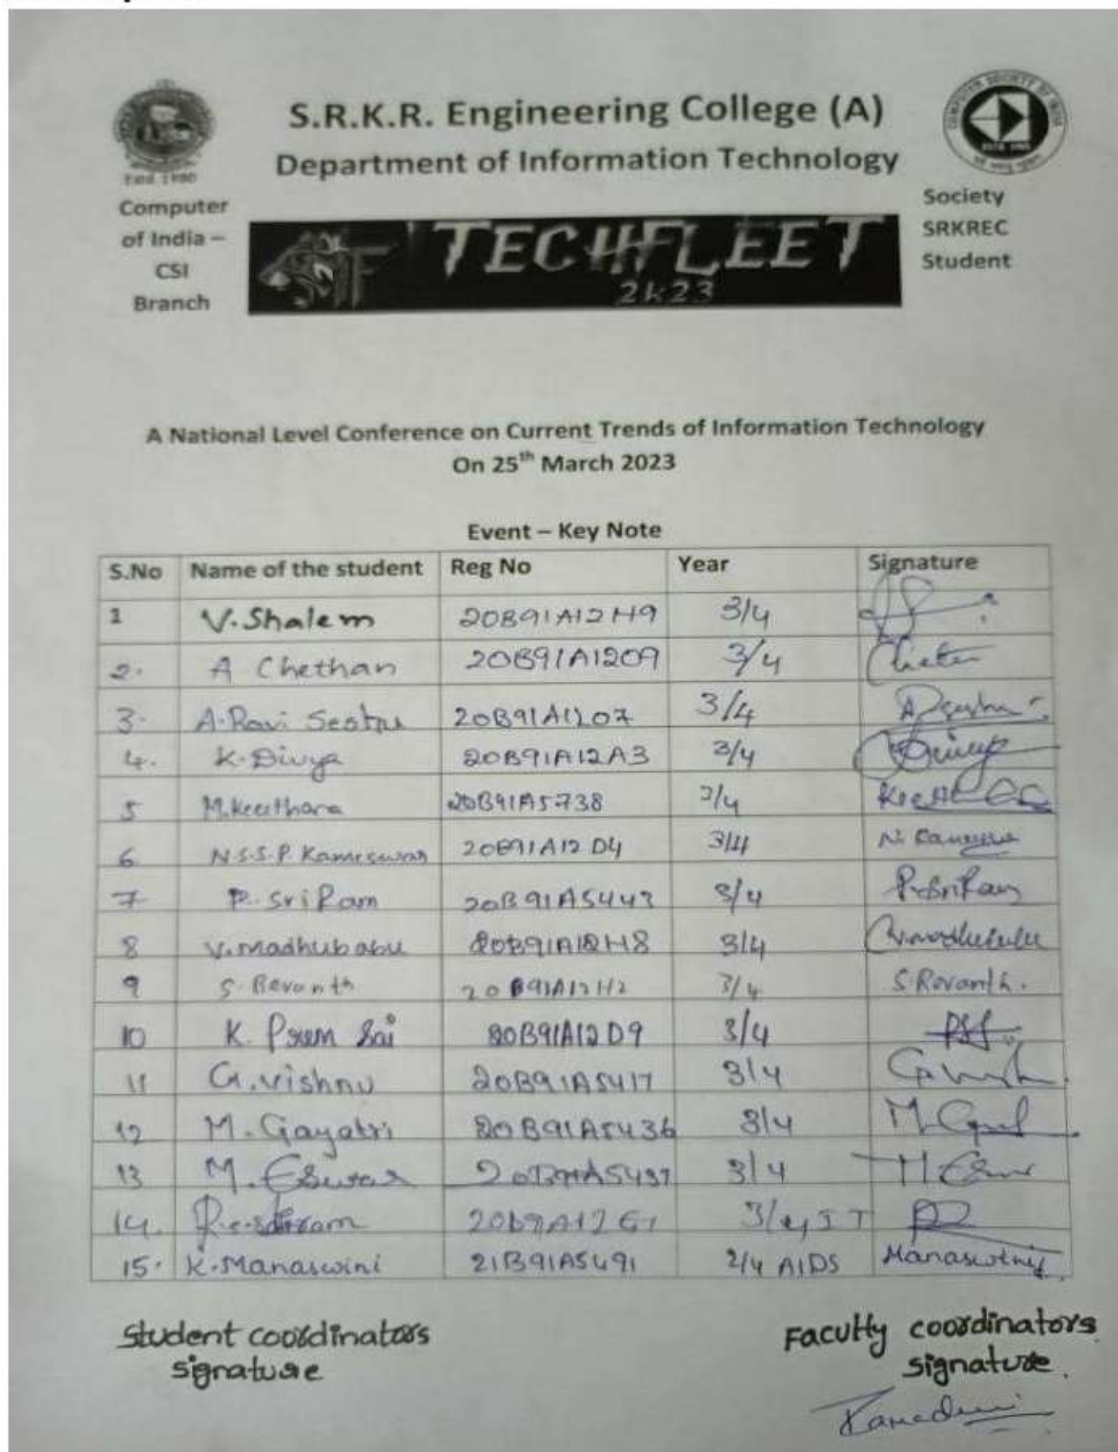 S.R.K.R. Engineering College (A)
Department of Information Technology
Estd. 1980
COMPUTER SOCIETY OF INDIA
Computer Society
of India – SRKREC
CSI Student
Branch
TECHFLEET
2k23
A National Level Conference on Current Trends of Information Technology
On 25th March 2023
Event – Key Note
S.No Name of the student Reg No Year Signature
1 V.Shalem 20B91A12H9 3/4
2. A Chethan 20B91A1209 3/4 Chetan
3. A.Ravi 20B91A1207 3/4
4. K.Divya 20B91A12A3 3/4 Divya
5 M.Keerthana 20B91A5738 3/4
6 N.S.S.P. Kameswar 20B91A12D4 3/4
7 P. Sri Ram 20B91A5443 3/4 P.SriRam
8 V.Madhubabu 20B91A12H8 3/4 V.Madhubabu
9 S. Revanth 20B91A12H2 3/4 S.Revanth.
10 K. Prem Sai 20B91A12D9 3/4
11 G.Vishnu 20B91A5417 3/4
12 M.Gayatri 20B91A5436 3/4
13 M.Eswar 20B91A5437 3/4
14. 3/4, IT
15. K.Manaswini 21B91A5491 2/4 AIDS Manaswini
Student coordinators Faculty coordinators
signature signature.